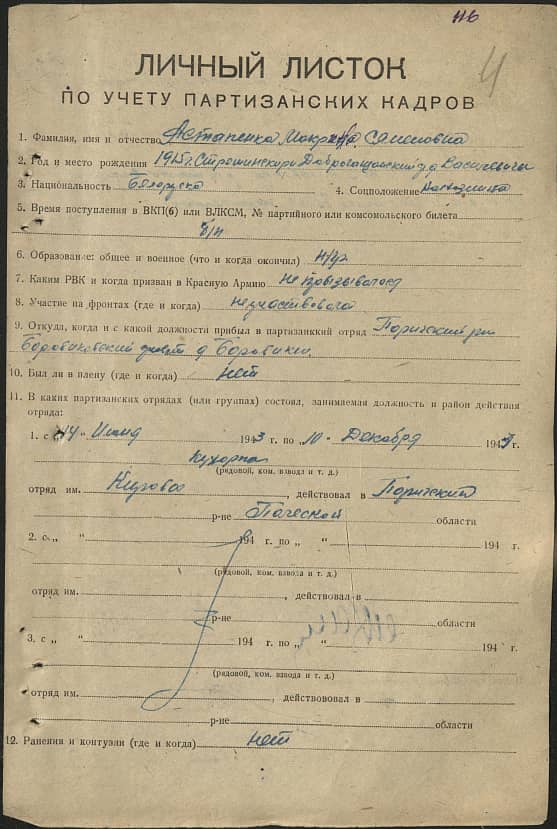 116
4
ЛИЧНЫЙ ЛИСТОК
ПО УЧЕТУ ПАРТИЗАНСКИХ КАДРОВ
1. Фамилия, имя и отчество Астапенко Семеновна
2. Год и место рождения 1915 г. Стрешинский р. д. Василевичи
3. Национальность Белоруска 4. Соцположение
5. Время поступления в ВКП(б) или ВЛКСМ, № партийного или комсомольского билета
б/п
6. Образование: общее и военное (что и когда окончил) н/гр
7. Каким РВК и когда призван в Красную Армию Не призывалась
8. Участие на фронтах (где и когда) Не участвовала
9. Откуда, когда и с какой должности прибыл в партизанкий отряд Паричский р-н
Боровиковский д Боровики.
10. Был ли в плену (где и когда) нет
11. В каких партизанских отрядах (или группах) состоял, занимаемая должность и район действия
отряда:
1. с „14“ 1943 г. по „10“ Декабря 194 г.
Кухарка
(рядовой, ком. взвода и т. д.)
отряд им. Кирова, действовал в Паричский
р-не Полесской области
2. с „ “ 194 г. по „ “ 194 г.
(рядовой, ком. взвода и т. д.)
отряд им. , действовал в
р-не области
3. с „ “ 194 г. по „ “ 194 г.
(рядовой, ком. взвода и т. д.)
отряд им. , действововал в
р-не области
12. Ранения и контузии (где и когда) нет